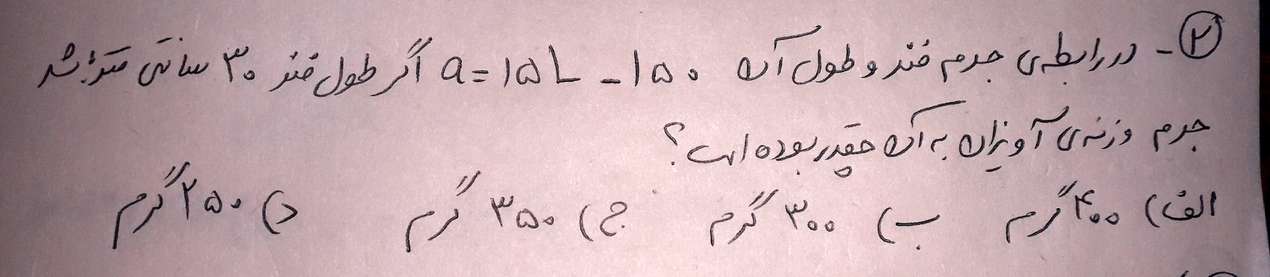 ۲- در رابطه‌ی جرم فنر و طول آن a = ۱۵L - ۱۵۰ اگر طول فنر ۳۰ سانتی متر باشد
جرم وزنه‌ی آویزان به آن چقدر بوده است؟
الف) ۴۰۰ گرم ب) ۳۰۰ گرم ج) ۳۵۰ گرم د) ۲۵۰ گرم